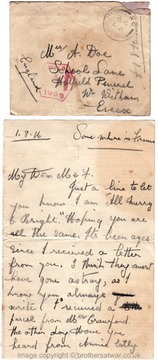 Mrs A. Doe
School Lane
Hatfield Peverel
Nr. Witham
Essex
England
1.7.16 Somewhere in France
My Dear M & F.
Just a line to let
you know I am "All Merry
& Bright." Hoping you are
all the same. It's been ages
since I received a letter
from you. I think they must
have gone astray, as I
know you always
write. I received a
parcel from
the other day. Have you
heard from
© www.brothersatwar.co.uk